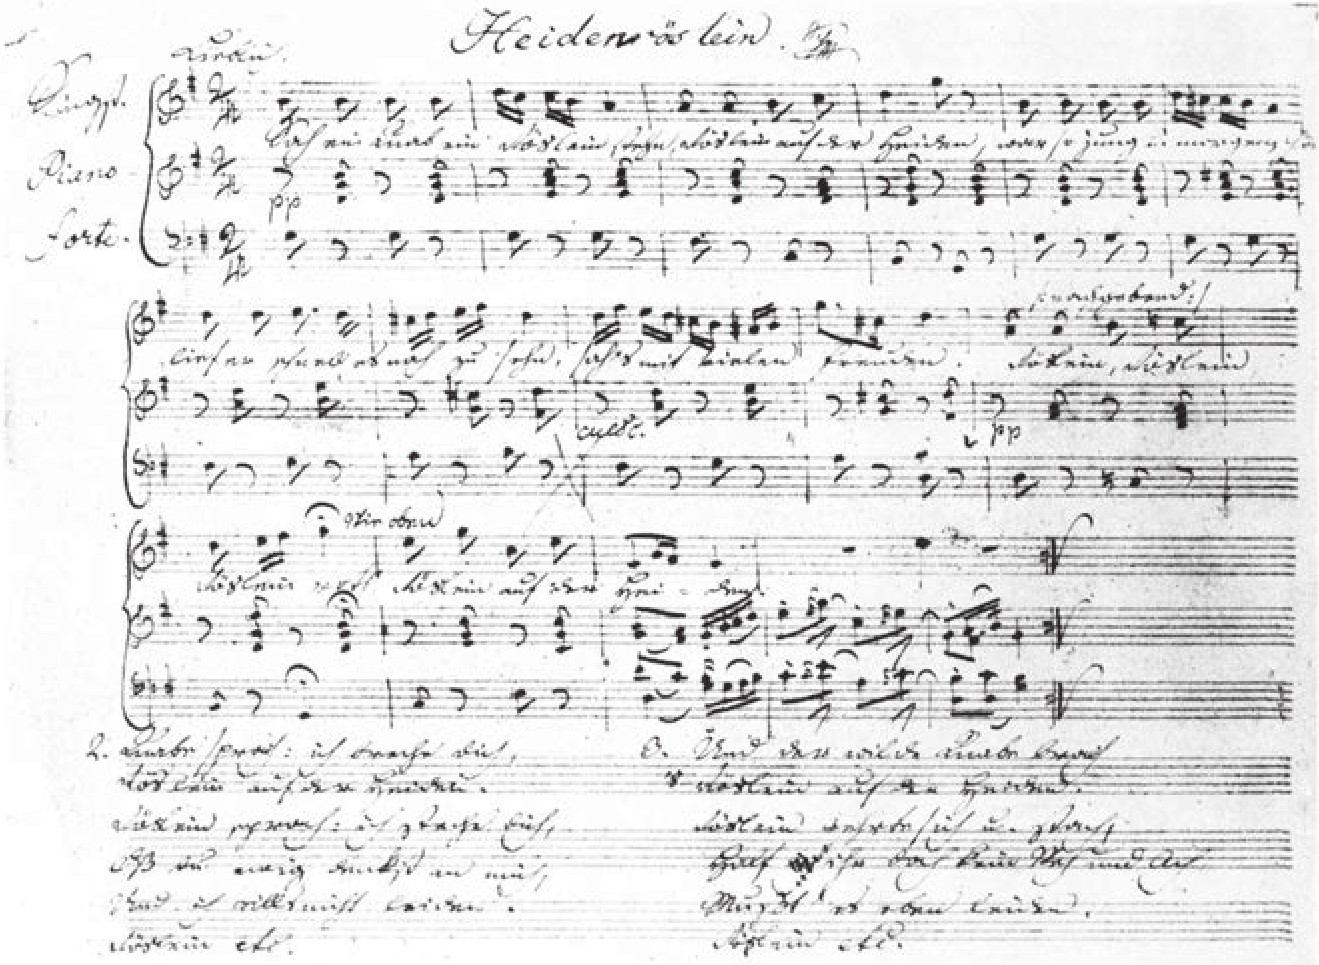 Heidenröslein.
Lieblich.
Singst.
Sah ein Knab ein Röslein stehn, Röslein auf der Heiden, war so jung u. morgenschön
Piano
pp
forte.
nachgebend
lief er schnell es nah zu sehn, sah's mit vielen Freuden. Röslein, Röslein
cresc.
pp
Wie oben
Röslein roth Röslein auf der Hei - den.
2. Knabe sprach: ich breche dich,
Röslein auf der Heiden.
Röslein sprach: ich steche dich,
Daß du ewig denkst an mich,
Und ich will's nicht leiden.
Röslein etc.
3. Und der wilde Knabe brach
's Röslein auf der Heiden.
Röslein wehrte sich u. stach,
Half ihr doch kein Weh und Ach
Mußt' es eben leiden.
Röslein etc.